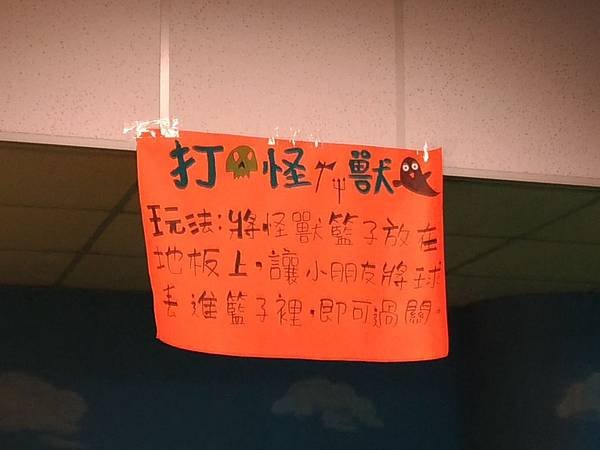 打怪獸
玩法:將怪獸籃子放在
地板上,讓小朋友將球
丟進籃子裡,即可過關。